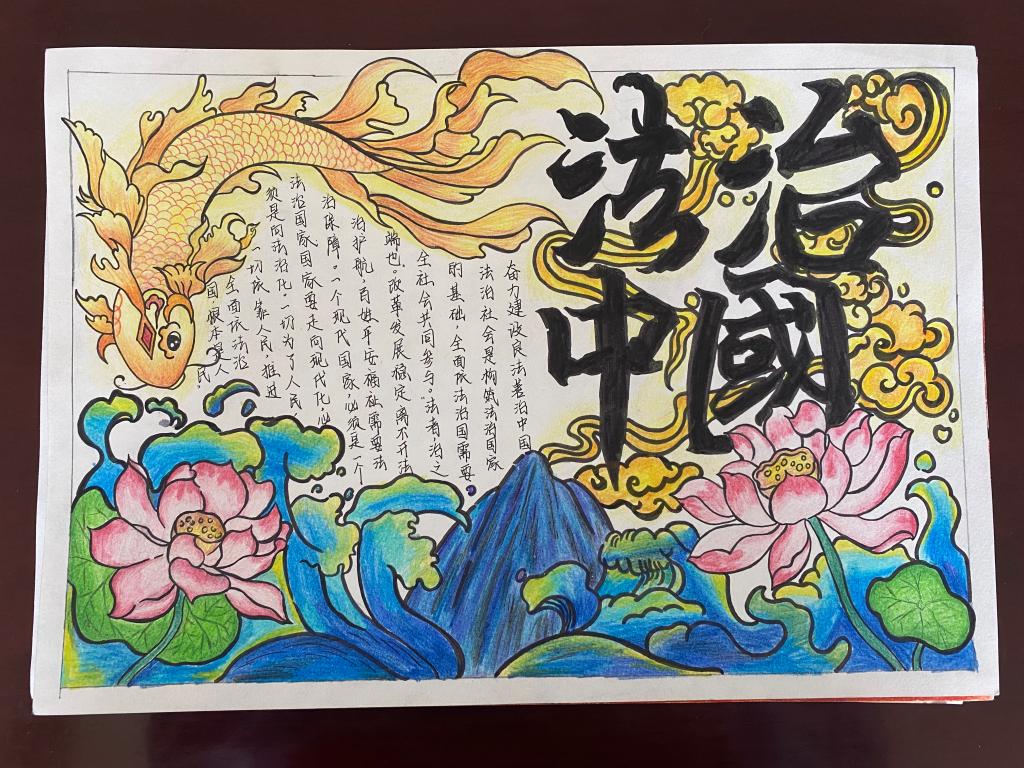 法治
中國
奋力建设良法善治中国
法治社会是构筑法治国家
的基础，全面依法治国需要
全社会共同参与“法者治之
端也。改革发展稳定离不开法
治护航，百姓平安福祉需要法
治保障。一个现代国家，必须是一个
法治国家国家要走向现代化，必
须是向法治化。一切为了人民
一切依靠人民，推进
全面依法治
国，根本是人
民